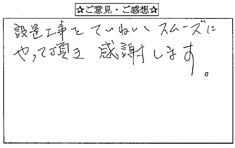 ☆ご意見・ご感想☆
設置工事をていねい、スムーズに
やって頂き 感謝します。